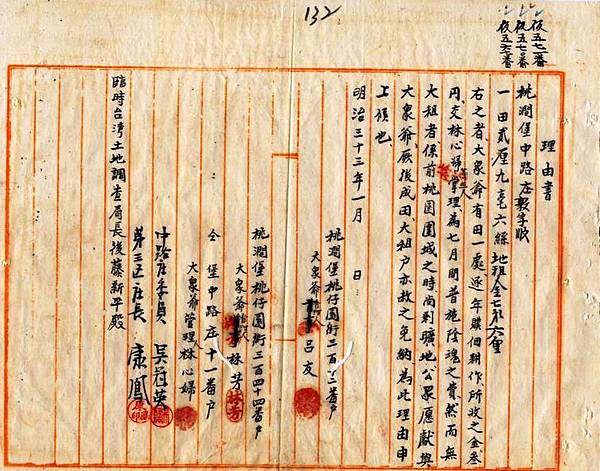 132
仮五七一番
仮五七〇番
仮五六一番
理由書
桃澗堡中路庄
一田貳厘九毫六絲 地租金七
右之者大衆爺有田一處逐年贌佃耕作所收之金叁
円交林心婦等三人掌理為七月間普施陰魂之費然而無
大租者係前桃園圍城之時尚剩曠地公眾應獻與
大衆爺厥後成田大租户亦赦之免納為此理由申
上候也
明治三十三年一月 日
桃澗堡桃仔園街三百六三番户
大衆爺管理人 呂友
桃澗堡桃仔園街三百四十四番户
大衆爺管理人 林芳
仝堡中路庄十一番户
大衆爺管理人 林心婦
中路庄委員 吳荷英
第三五庄長 康鳳
臨時台湾土地調查局長後藤新平殿